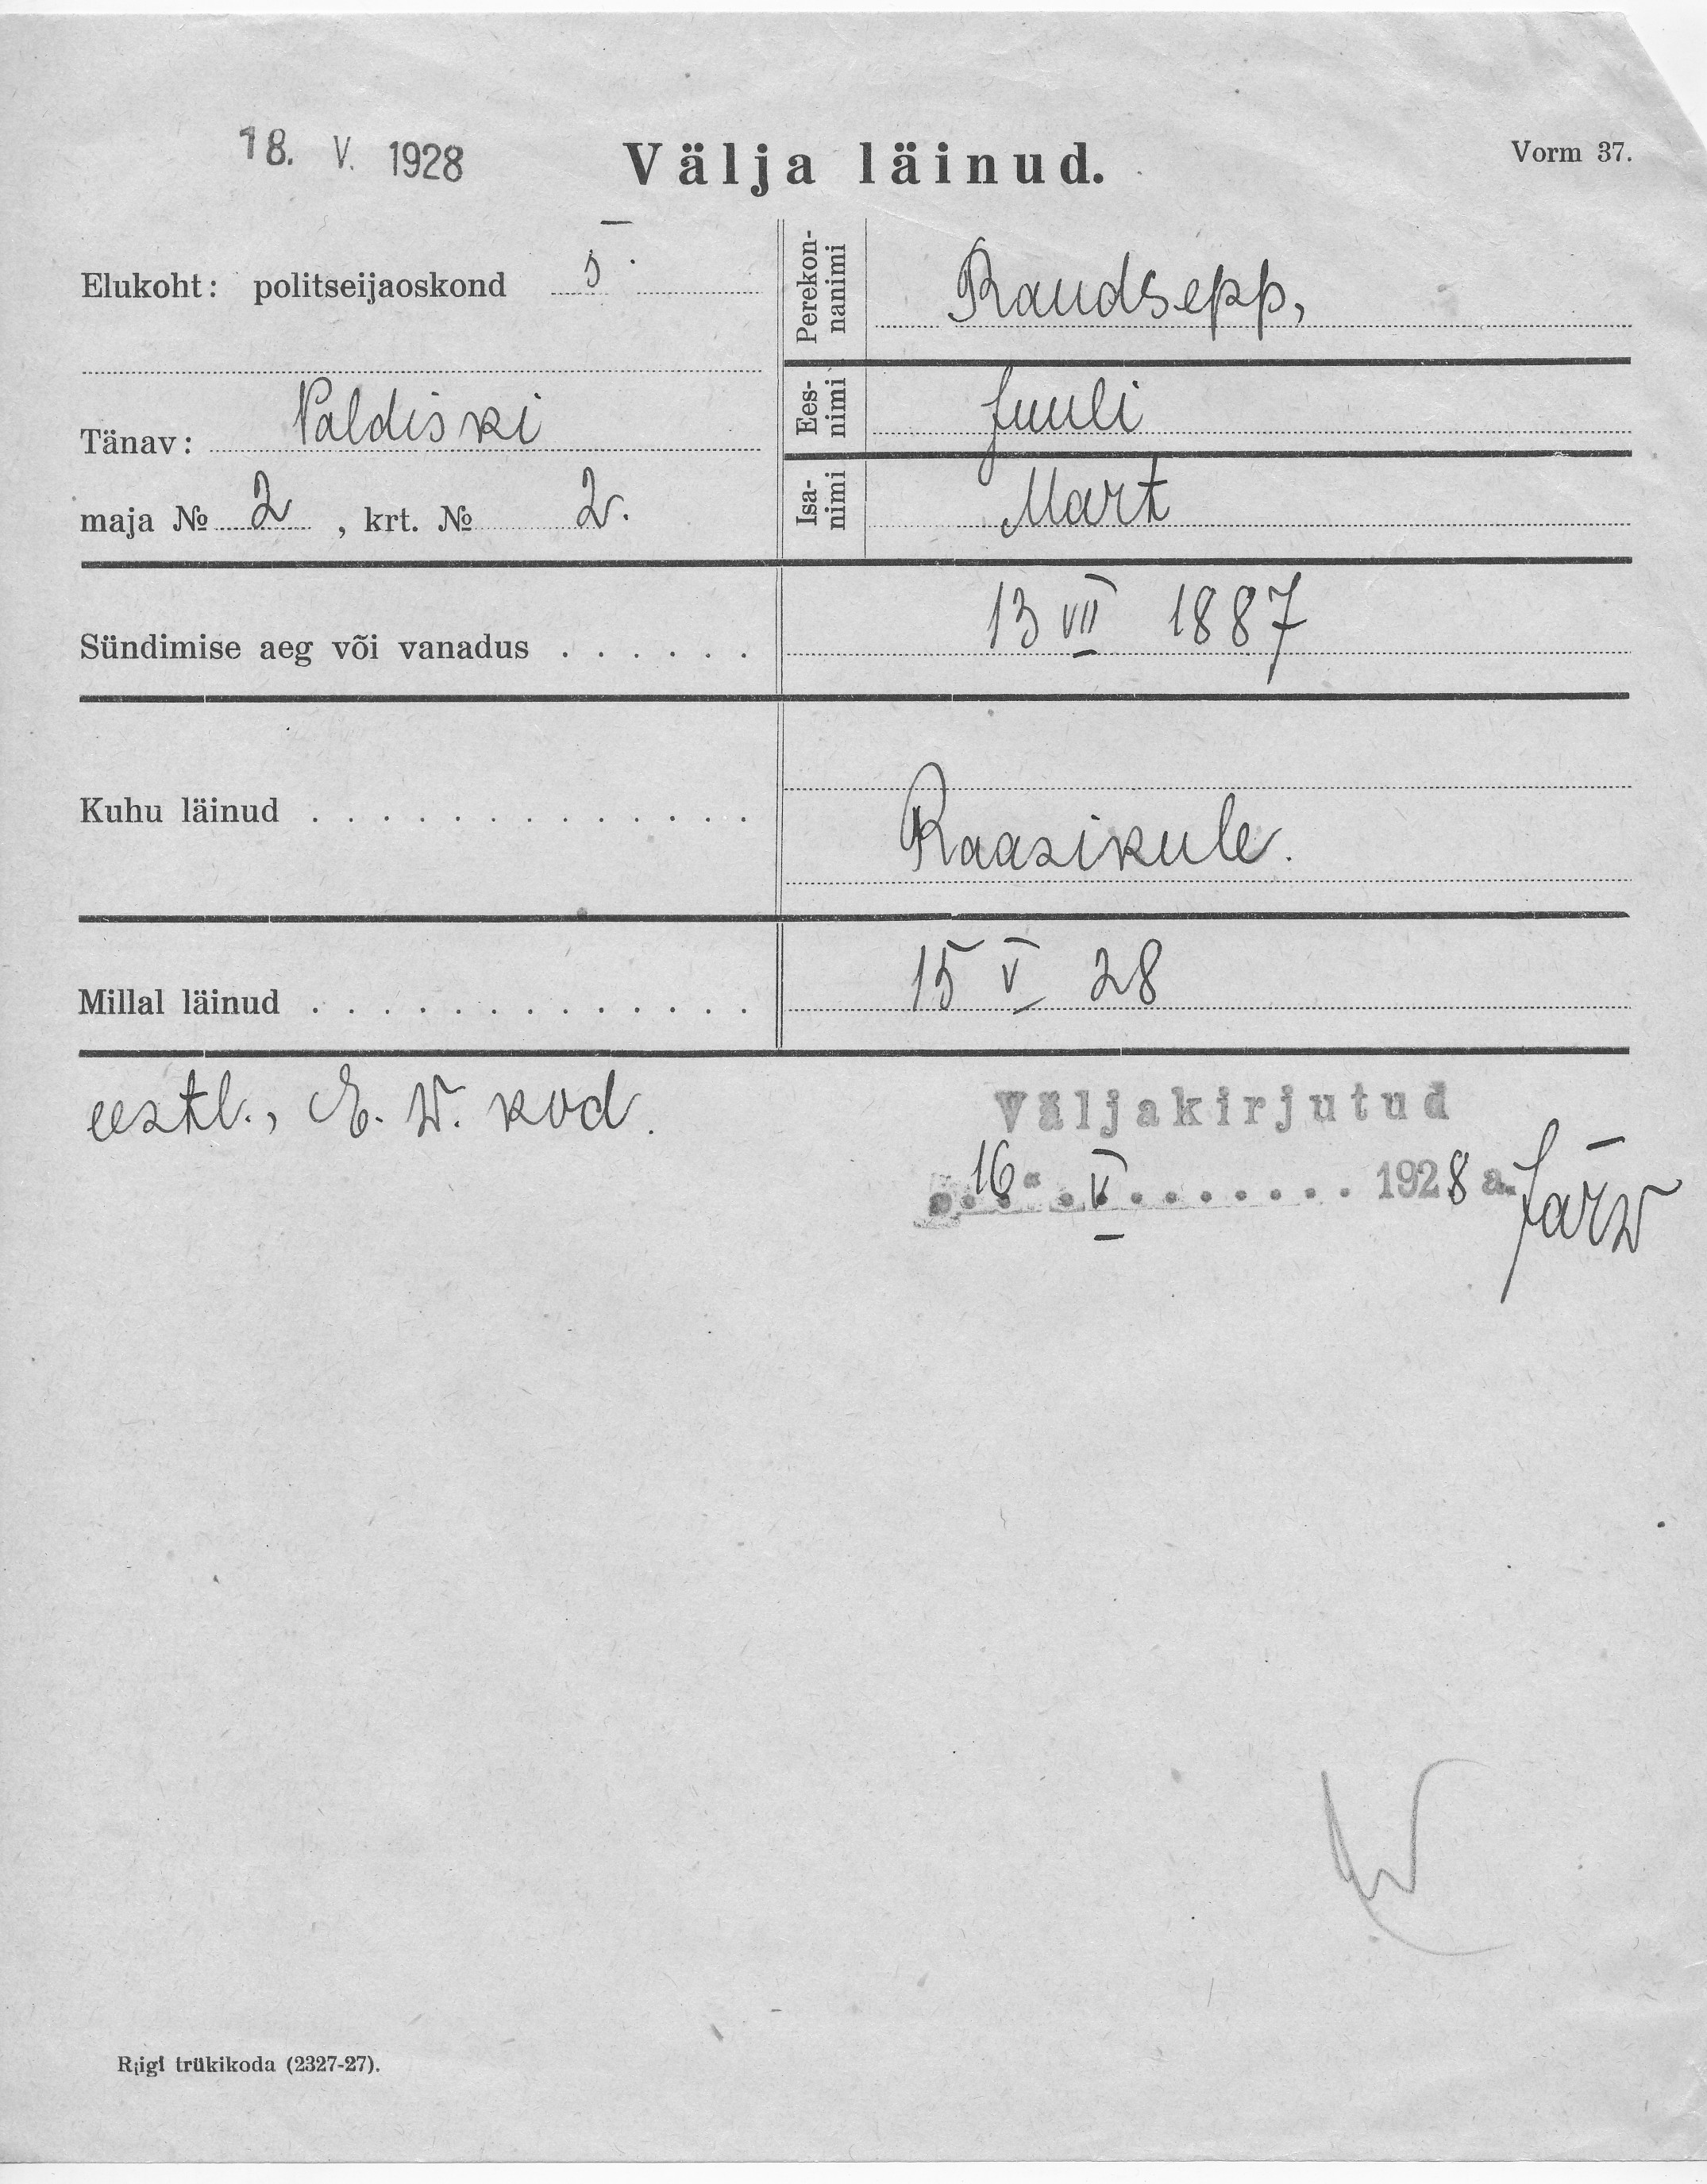 18. V. 1928
Välja läinud.
Vorm 37.
Elukoht: politseijaoskond 5.
Tänav: Paldiski
maja № 2, krt. № 2.
Perekon-
nanimi
Raudsepp,
Ees-
nimi
Juuli
Isa-
nimi
Mart
Sündimise aeg või vanadus . . . . . .
13 VII 1887
Kuhu läinud . . . . . . . . . . . . .
Raasikule.
Millal läinud . . . . . . . . . . . . .
15 V 28
eestl., E. W. kod.
Väljakirjutud
„16“ V 1928 a.
Järw
W
Riigi trükikoda (2327-27).